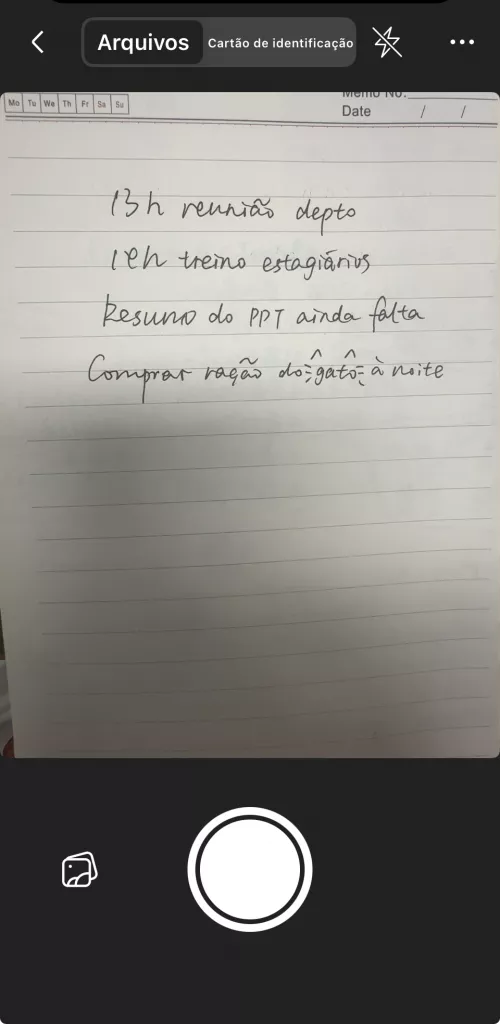 Arquivos
Cartão de identificação
Mo Tu We Th Fr Sa Su
Memo No.:
Date / /
13h reunião depto
treino estagiários
Resumo do PPT ainda falta
Comprar ração do gato à noite